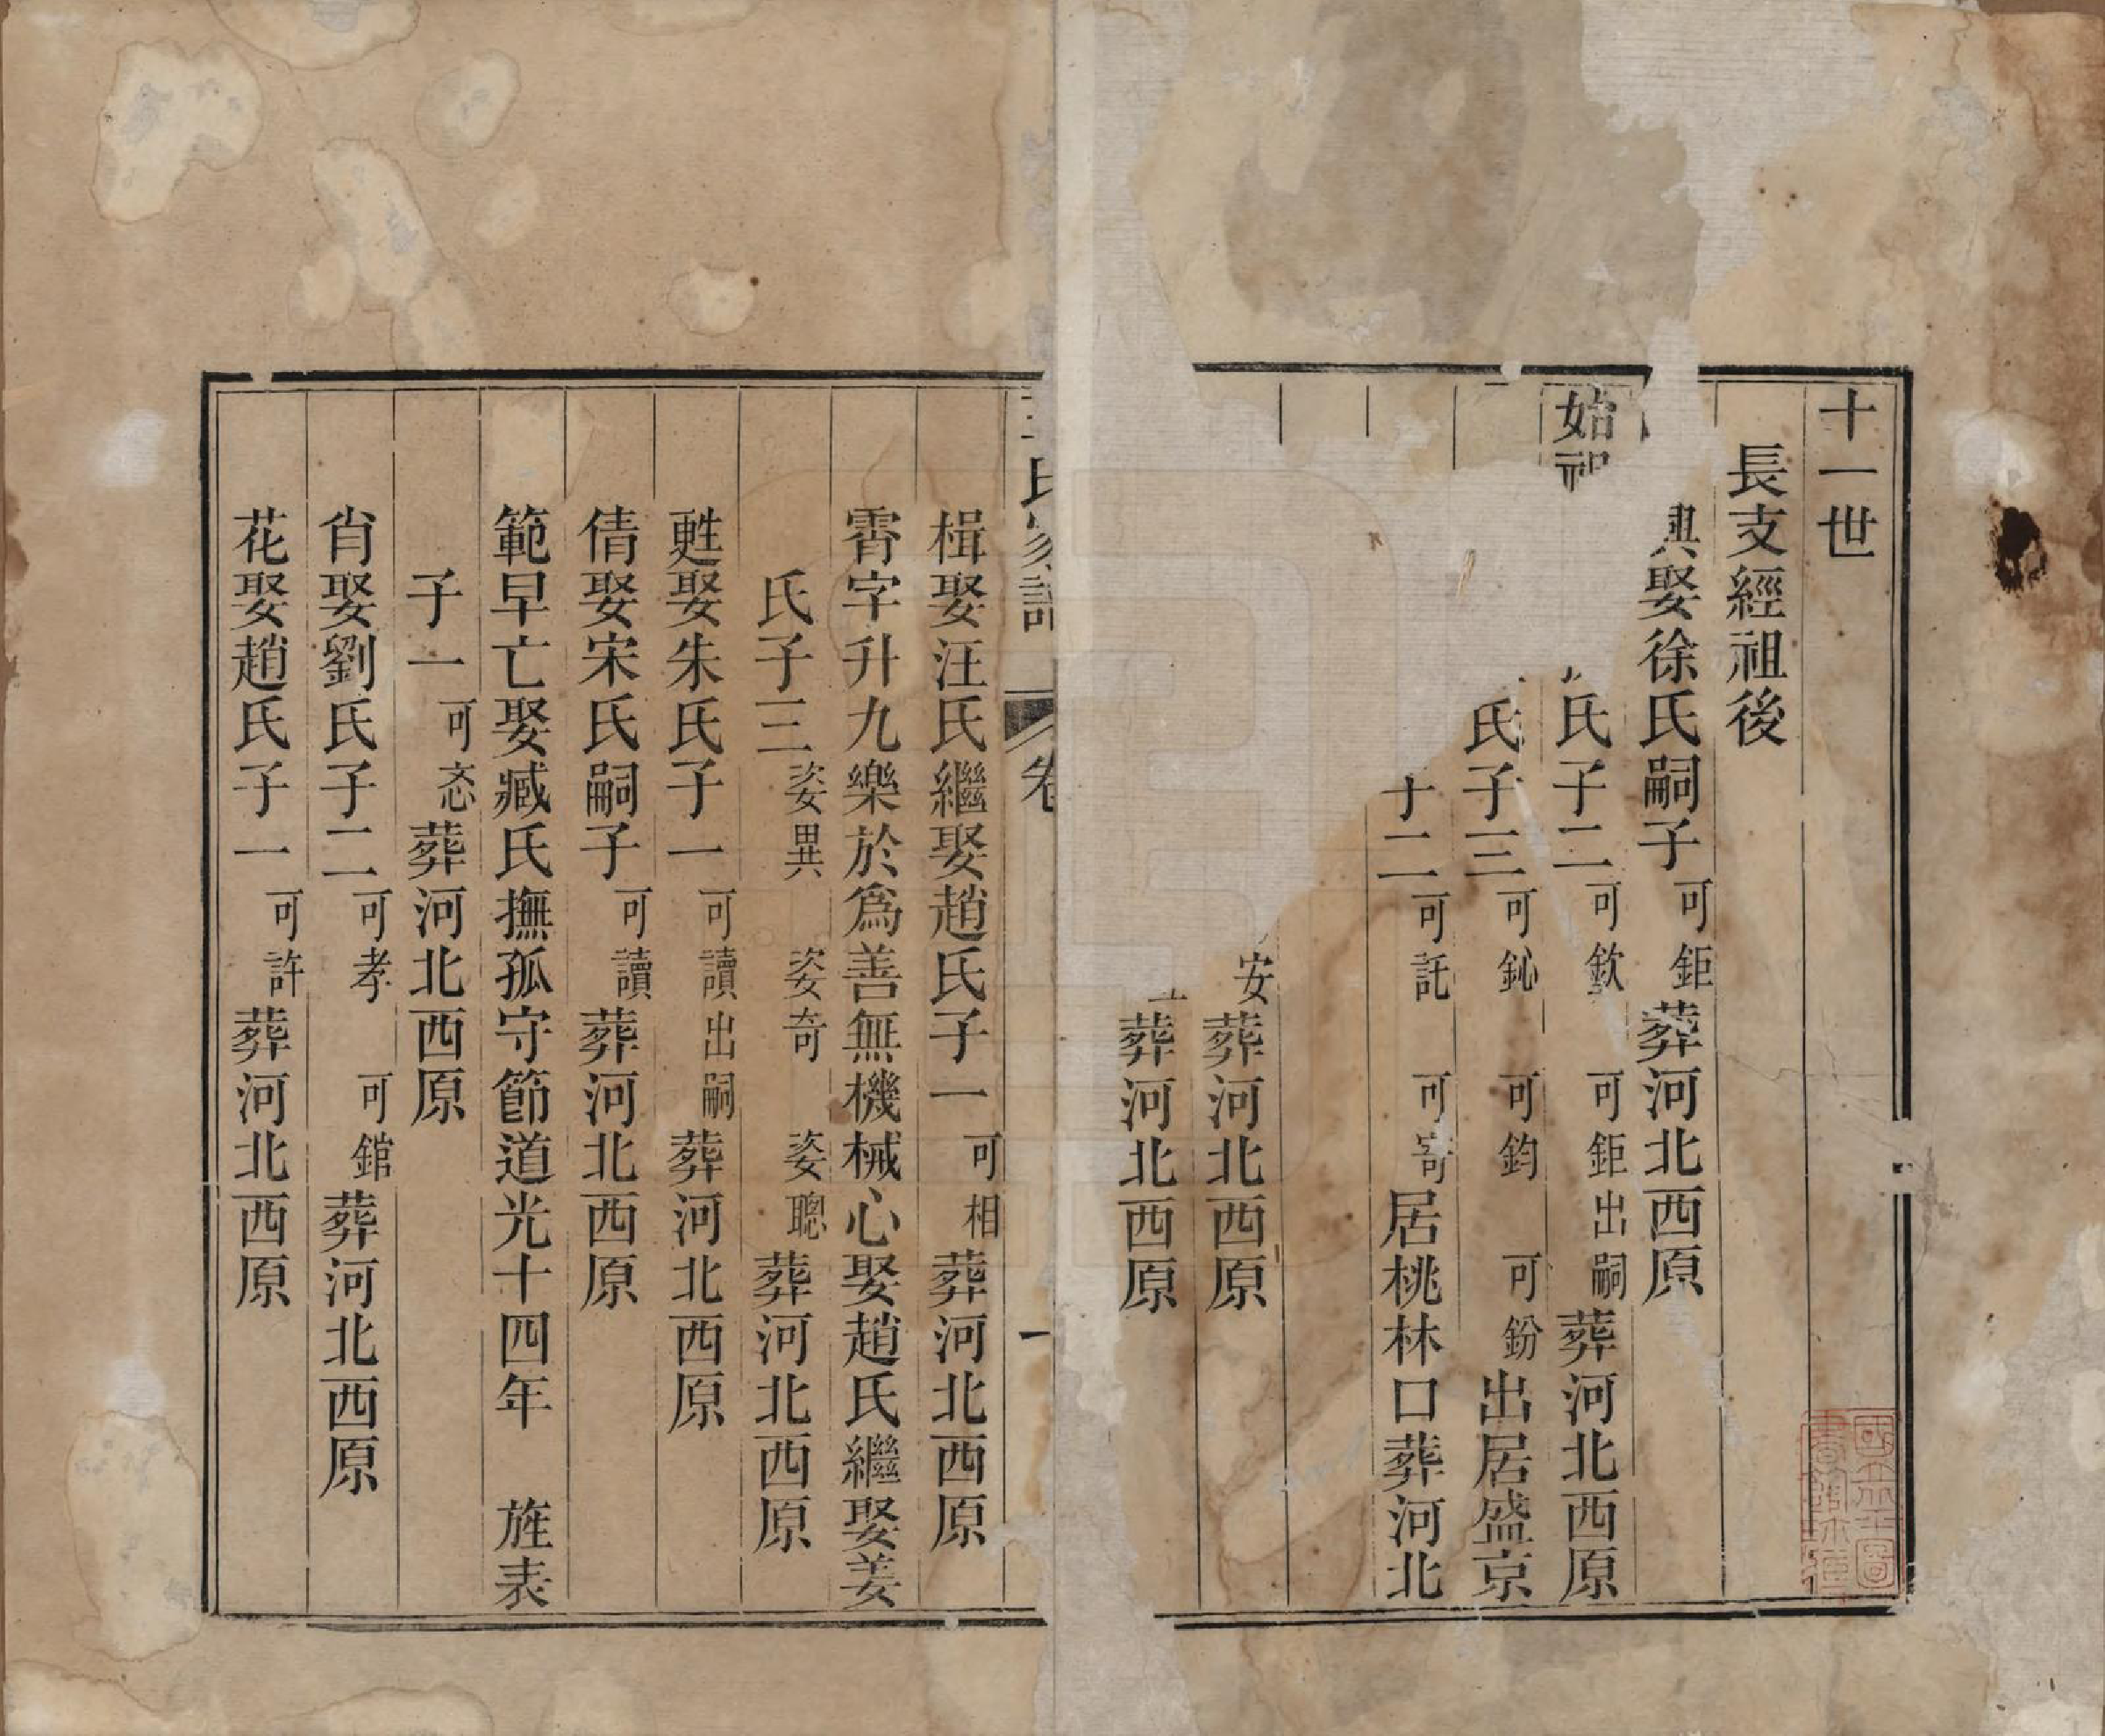 十一世
長支經祖後
興娶徐氏嗣子可鉅葬河北西原
始祖
氏子二可欽可鉅出嗣葬河北西原
氏子三可鈊可鈞可鈖出居盛京
十二可託可寄居桃林口葬河北
安葬河北西原
葬河北西原
氏家譜卷一
楫娶汪氏繼娶趙氏子一可相葬河北西原
霄字升九樂於為善無機械心娶趙氏繼娶姜
氏子三姿異姿奇姿聰葬河北西原
甦娶朱氏子一可讀出嗣葬河北西原
倩娶宋氏嗣子可讀葬河北西原
範早亡娶臧氏撫孤守節道光十四年 旌表
子一可忞葬河北西原
肯娶劉氏子二可孝可錧葬河北西原
花娶趙氏子一可許葬河北西原